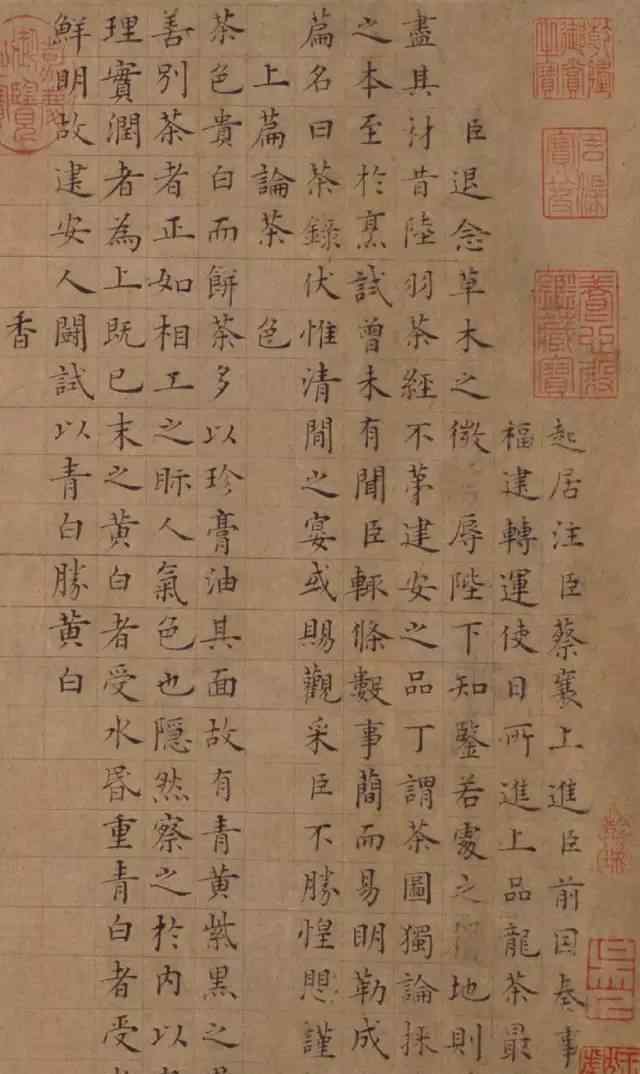 乾隆御覽之寶
石渠寶笈
養心殿鑑藏寶
起居注臣蔡襄上進臣前因奏事
福建轉運使日所進上品龍茶最
臣退念草木之微辱陛下知鑒若處之地則
盡其材昔陸羽茶經不第建安之品丁謂茶圖獨論採
之本至於烹試曾未有聞臣輒條數事簡而易明勒成
篇名曰茶錄伏惟清閒之宴或賜觀采臣不勝惶懼謹
上篇論茶
色
茶色貴白而餅茶多以珍膏油其面故有青黃紫黑之
善別茶者正如相工之眎人氣色也隱然察之於內以
理實潤者為上既已末之黃白者受水昏重青白者受
鮮明故建安人鬬試以青白勝黃白
香